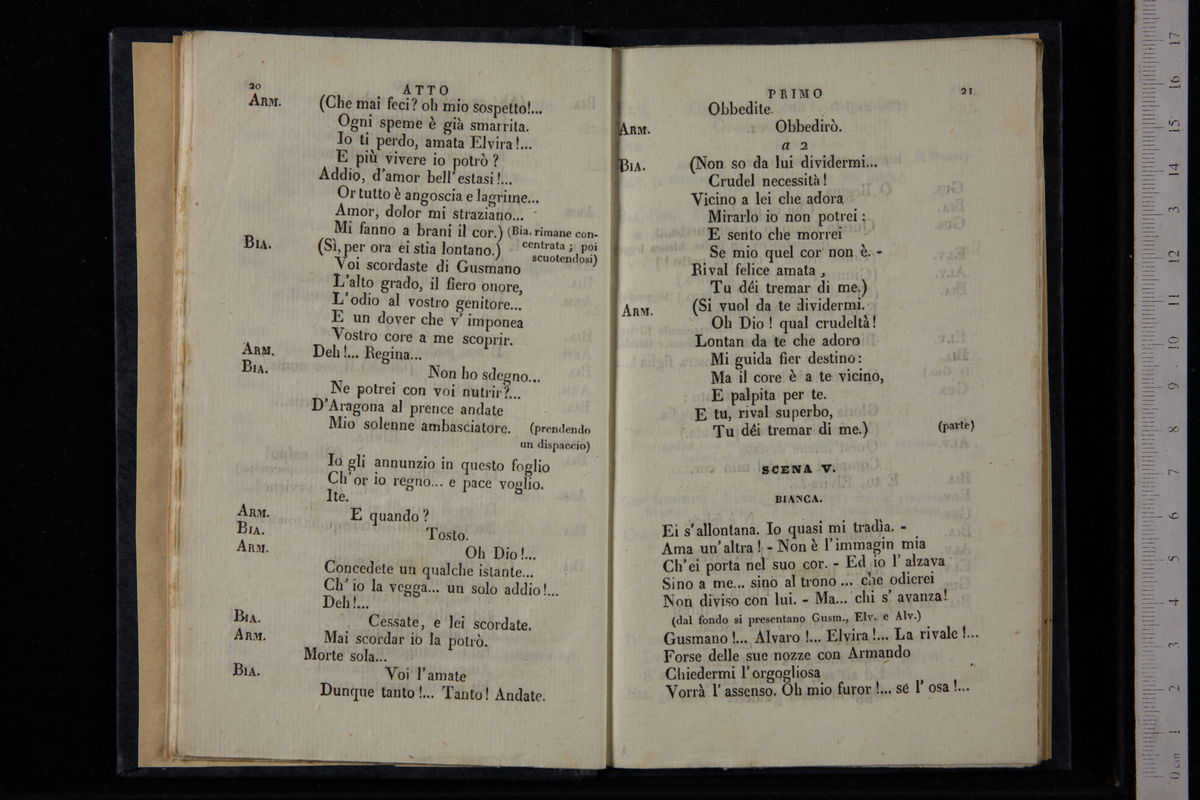 20
ATTO
ARM. (Che mai feci? oh mio sospetto!...
Ogni speme è già smarrita.
Io ti perdo, amata Elvira!...
E più vivere io potrò ?
Addio, d'amor bell' estasi!...
Or tutto è angoscia e lagrime...
Amor, dolor mi straziano...
Mi fanno a brani il cor.) (Bia. rimane con-
centrata; poi
BIA. (Sì, per ora ei stia lontano.)
scuotendosi)
Voi scordaste di Gusmano
L'alto grado, il fiero onore,
L'odio al vostro genitore...
E un dover che v' imponea
Vostro core a me scoprir.
ARM. Deh!... Regina...
BIA. Non ho sdegno...
Ne potrei con voi nutrir?...
D'Aragona al prence andate
Mio solenne ambasciatore. (prendendo
un dispaccio)
Io gli annunzio in questo foglio
Ch' or io regno... e pace voglio.
Ite.
ARM. E quando ?
BIA. Tosto.
ARM. Oh Dio!...
Concedete un qualche istante...
Ch' io la vegga... un solo addio!...
Deh!...
BIA. Cessate, e lei scordate.
ARM. Mai scordar io la potrò.
Morte sola...
BIA. Voi l'amate
Dunque tanto!... Tanto! Andate.
PRIMO
21
Obbedite.
ARM. Obbedirò.
a 2
BIA. (Non so da lui dividermi...
Crudel necessità!
Vicino a lei che adora
Mirarlo io non potrei :
E sento che morrei
Se mio quel cor non è. -
Rival felice amata ,
Tu déi tremar di me.)
ARM. (Si vuol da te dividermi.
Oh Dio ! qual crudeltà!
Lontan da te che adoro
Mi guida fier destino:
Ma il core è a te vicino,
E palpita per te.
E tu, rival superbo,
Tu déi tremar di me.) (parte)
SCENA V.
BIANCA.
Ei s'allontana. Io quasi mi tradìa. -
Ama un'altra! - Non è l'immagin mia
Ch'ei porta nel suo cor. - Ed io l' alzava
Sino a me... sino al trono ... che odierei
Non diviso con lui. - Ma... chi s' avanza!
(dal fondo si presentano Gusm., Elv. e Alv.)
Gusmano !... Alvaro !... Elvira!... La rivale !...
Forse delle sue nozze con Armando
Chiedermi l'orgogliosa
Vorrà l' assenso. Oh mio furor !... se l' osa !...
0 cm 1 2 3 4 5 6 7 8 9 10 11 12 13 14 15 16 17